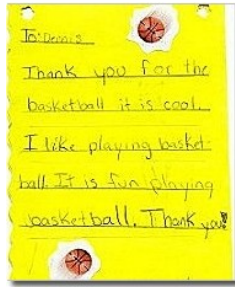 To: Dennis
Thank you for the
basketball it is cool.
I like playing basket-
ball. It is fun playing
basketball. Thank you!